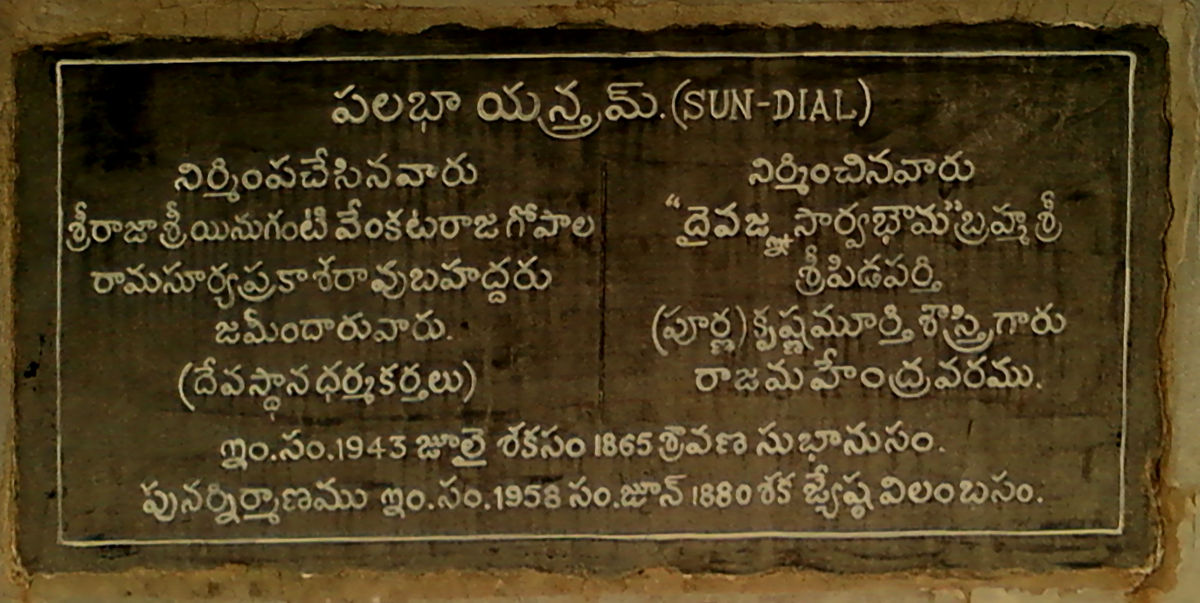 పలభా యన్త్రమ్.(SUN-DIAL)
నిర్మింపచేసినవారు
శ్రీరాజా శ్రీయినుగంటి వేంకటరాజ గోపాల
రామసూర్యప్రకాశరావుబహద్దరు
జమీందారువారు.
(దేవస్థాన ధర్మకర్తలు)
నిర్మించినవారు
"దైవజ్ఞ సార్వభౌమ"బ్రహ్మశ్రీ
శ్రీపిడపర్తి
(పూర్ణ)కృష్ణమూర్తి శాస్త్రిగారు
రాజమహేంద్రవరము.
ఇం.సం.1943 జూలై శకసం 1865 శ్రావణ సుభానుసం.
పునర్నిర్మాణము ఇం.సం.1958 సం.జూన్ 1880 శక జ్యేష్ఠ విలంబసం.